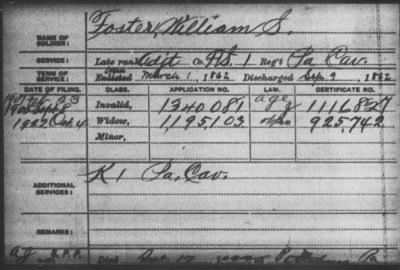 NAME OF SOLDIER: Foster, William S.
SERVICE: Late rank Adjt Co. F.S. 1 Reg't Pa Cav.
TERM OF SERVICE: Enlisted March 1, 1862 Discharged Sep. 9, 1862
DATE OF FILING. CLASS. APPLICATION NO. LAW. CERTIFICATE NO.
Invalid, 1340081 1116827
Widow, 1195103 925,742
1922 Oct. 4
Minor,
ADDITIONAL SERVICES: K 1 Pa. Cav.
REMARKS:
Died Pa